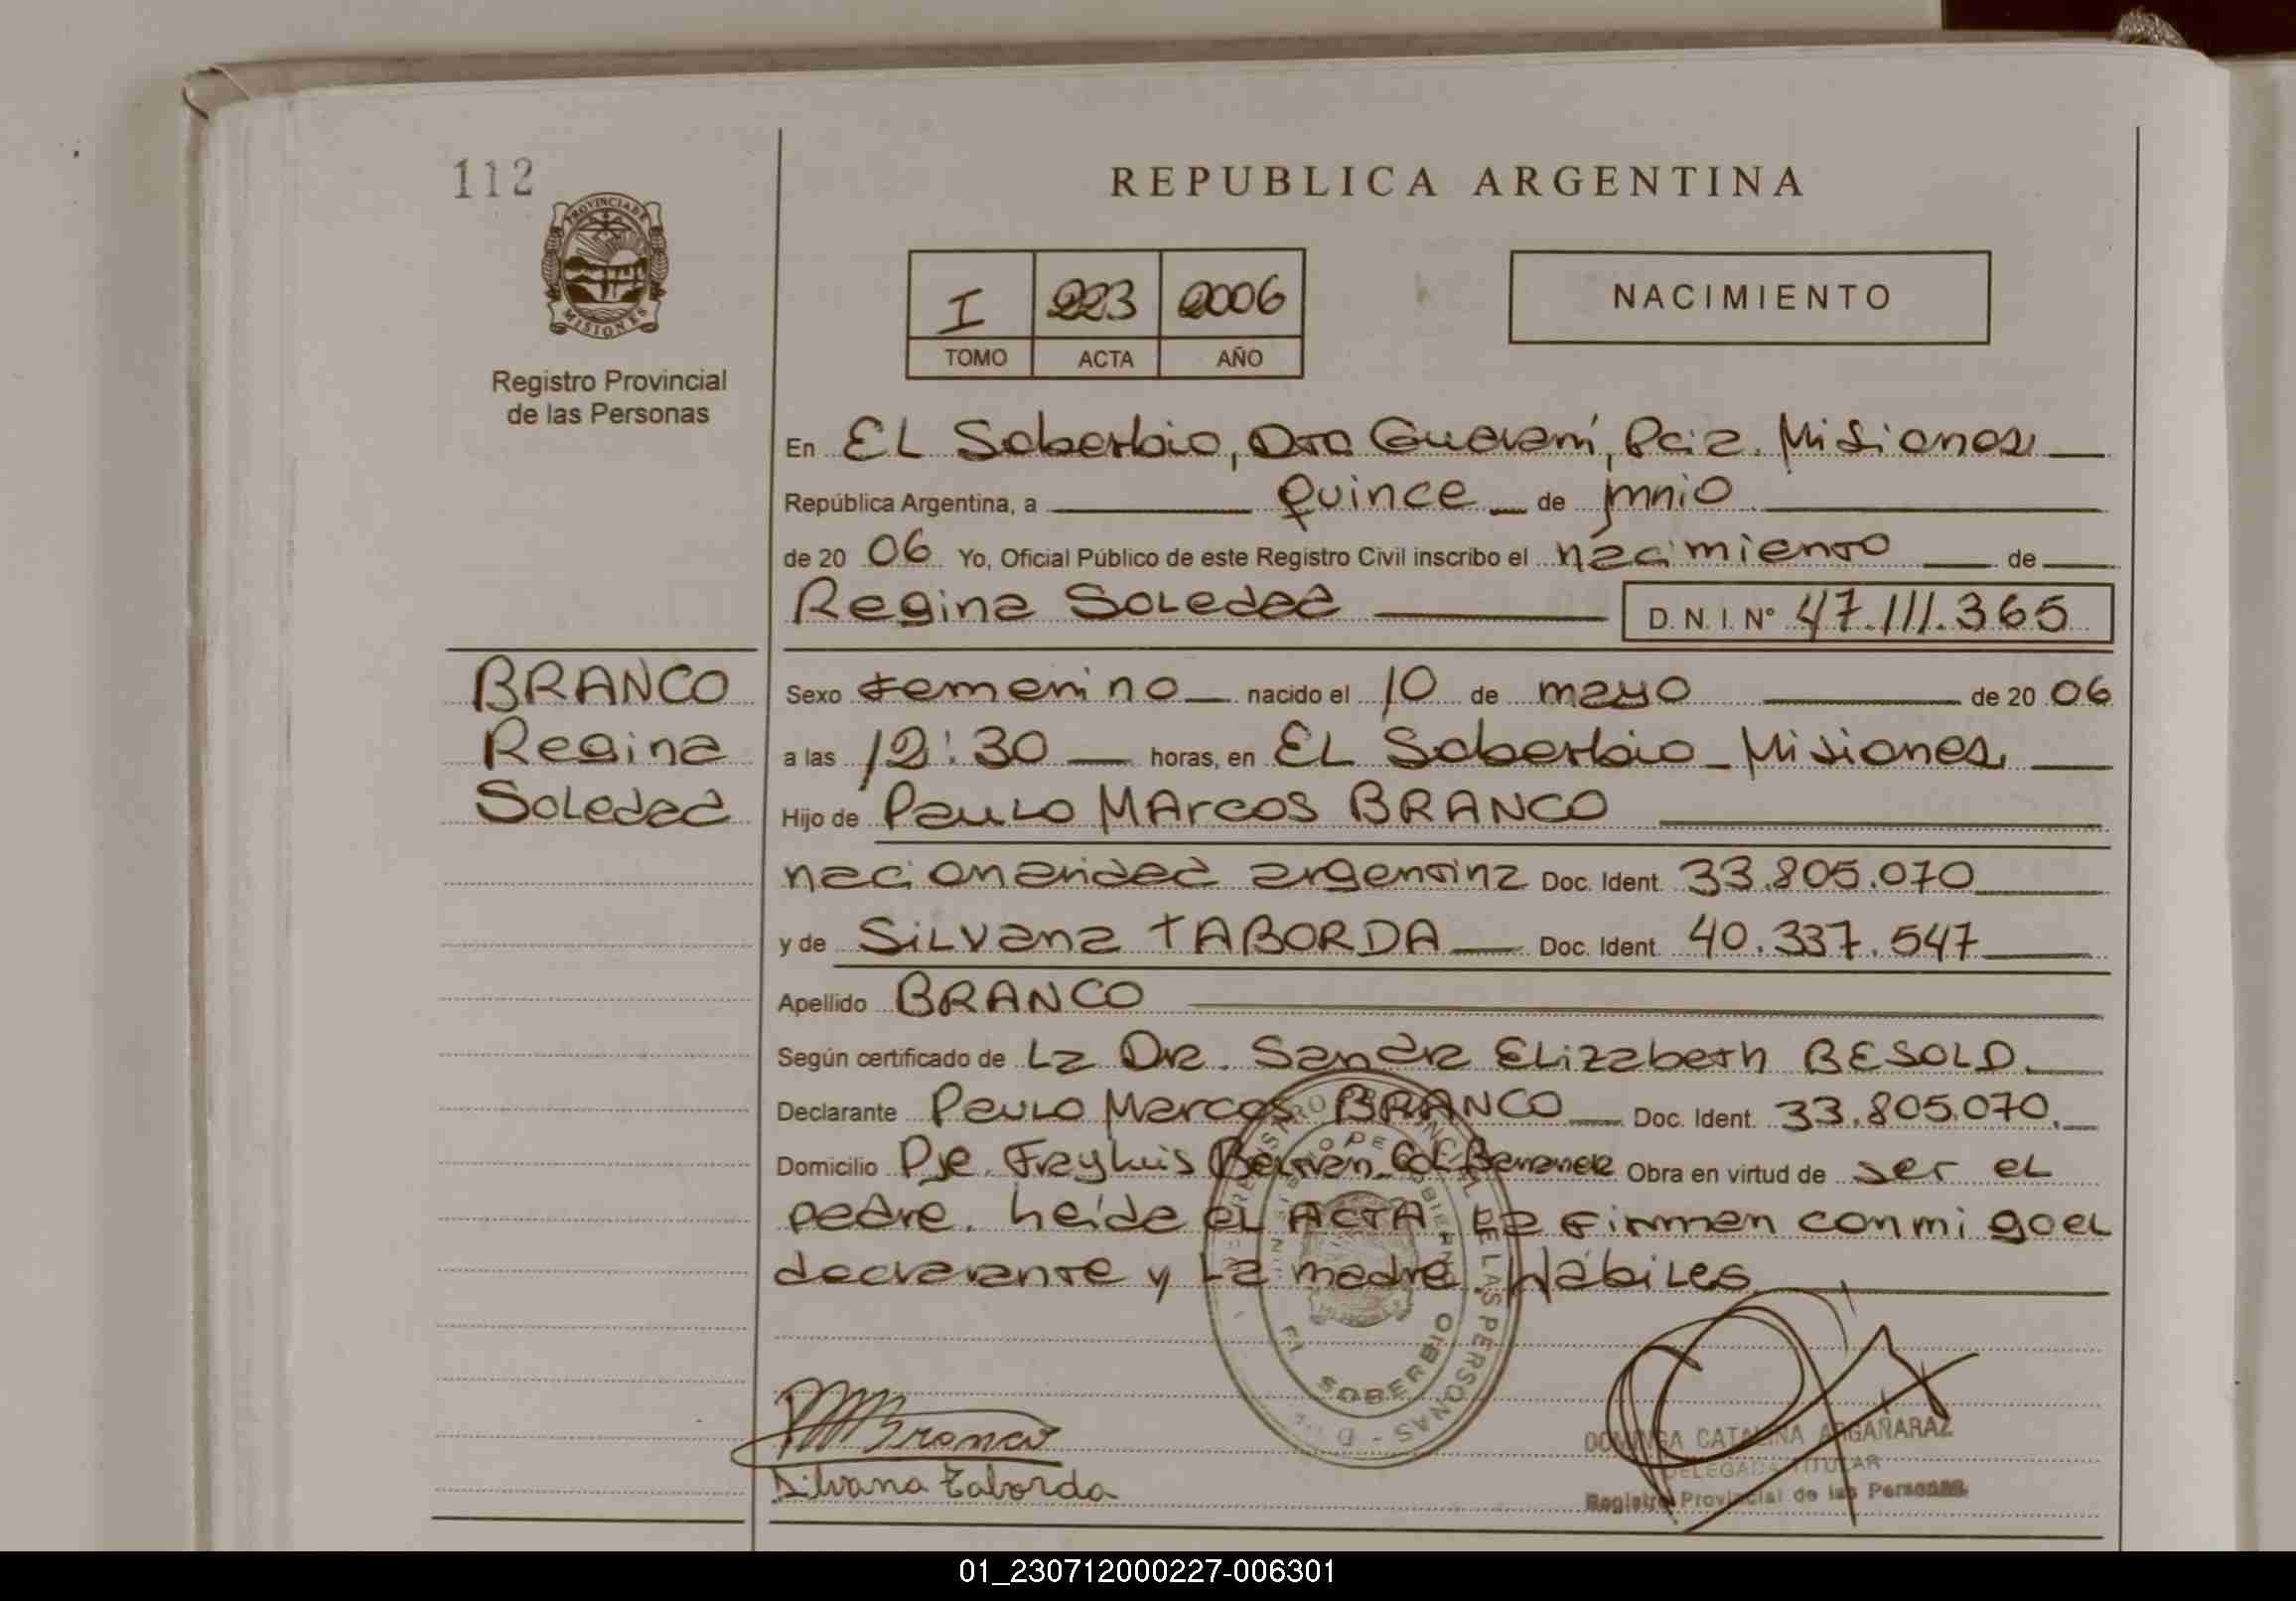 112
PROVINCIA DE
MISIONES
Registro Provincial
de las Personas
REPUBLICA ARGENTINA
I 223 2006
TOMO ACTA AÑO
NACIMIENTO
En EL Soberbio, Dto Guaraní, Pcia. Misiones
República Argentina, a quince de junio
de 20 06 Yo, Oficial Público de este Registro Civil inscribo el nacimiento de
Regina Soledad D. N. I. N° 47.111.365
BRANCO
Regina
Soledad
Sexo femenino nacido el 10 de mayo de 20 06
a las 12:30 horas, en EL Soberbio - Misiones
Hijo de Paulo MArcos BRANCO
nacionalidad argentina Doc. Ident. 33.805.070
y de Silvana TABORDA Doc. Ident. 40.337.547
Apellido BRANCO
Según certificado de La Dra. Sandra Elizabeth BESOLD.
Declarante Paulo Marcos BRANCO Doc. Ident. 33.805.070.
Domicilio Pje. Fray Luis Beltran Col. Obra en virtud de ser el
padre. Leída el ACTA La firman conmigo el
declarante y La madre. Hábiles.
SOBERBIO
DE LAS PERSONAS
Branco
Silvana Taborda
DOMINGA CATALINA ARGAÑARAZ
DELEGADA TITULAR
Registro Provincial de las Personas
01_230712000227-006301